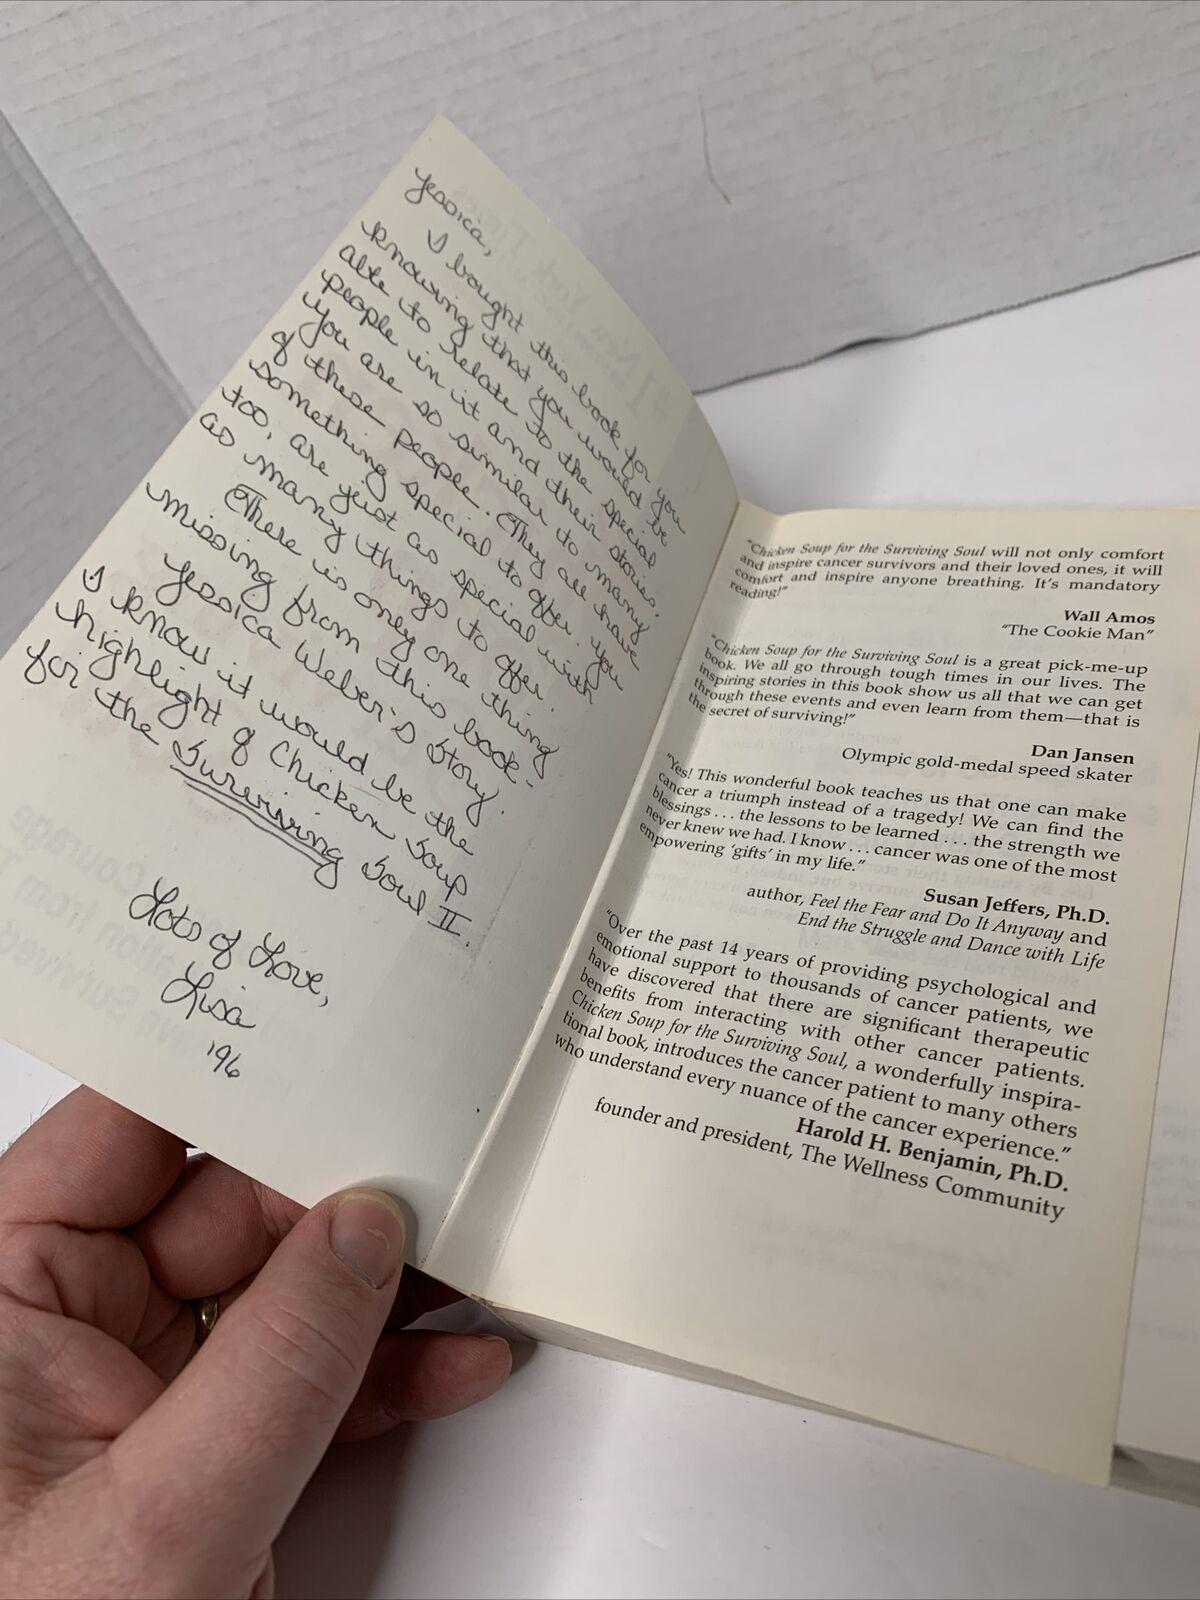 Jessica,
I bought this book for you
knowing that you would be
able to relate to the special
people in it and their stories.
You are so similar to many
of these people. They all have
something special to offer. You
too, are just as special with
as many things to offer.
There is only one thing
missing from this book-
Jessica Weber's Story.
I know it would be the
highlight of Chicken Soup
for the Surviving Soul II.
Lots of Love,
Lisa
'96
"Chicken Soup for the Surviving Soul will not only comfort
and inspire cancer survivors and their loved ones, it will
comfort and inspire anyone breathing. It's mandatory
reading!"
Wall Amos
"The Cookie Man"
"Chicken Soup for the Surviving Soul is a great pick-me-up
book. We all go through tough times in our lives. The
inspiring stories in this book show us all that we can get
through these events and even learn from them—that is
the secret of surviving!"
Dan Jansen
Olympic gold-medal speed skater
"Yes! This wonderful book teaches us that one can make
cancer a triumph instead of a tragedy! We can find the
blessings . . . the lessons to be learned . . . the strength we
never knew we had. I know . . . cancer was one of the most
empowering 'gifts' in my life."
Susan Jeffers, Ph.D.
author, Feel the Fear and Do It Anyway and
End the Struggle and Dance with Life
"Over the past 14 years of providing psychological and
emotional support to thousands of cancer patients, we
have discovered that there are significant therapeutic
benefits from interacting with other cancer patients.
Chicken Soup for the Surviving Soul, a wonderfully inspira-
tional book, introduces the cancer patient to many others
who understand every nuance of the cancer experience."
Harold H. Benjamin, Ph.D.
founder and president, The Wellness Community